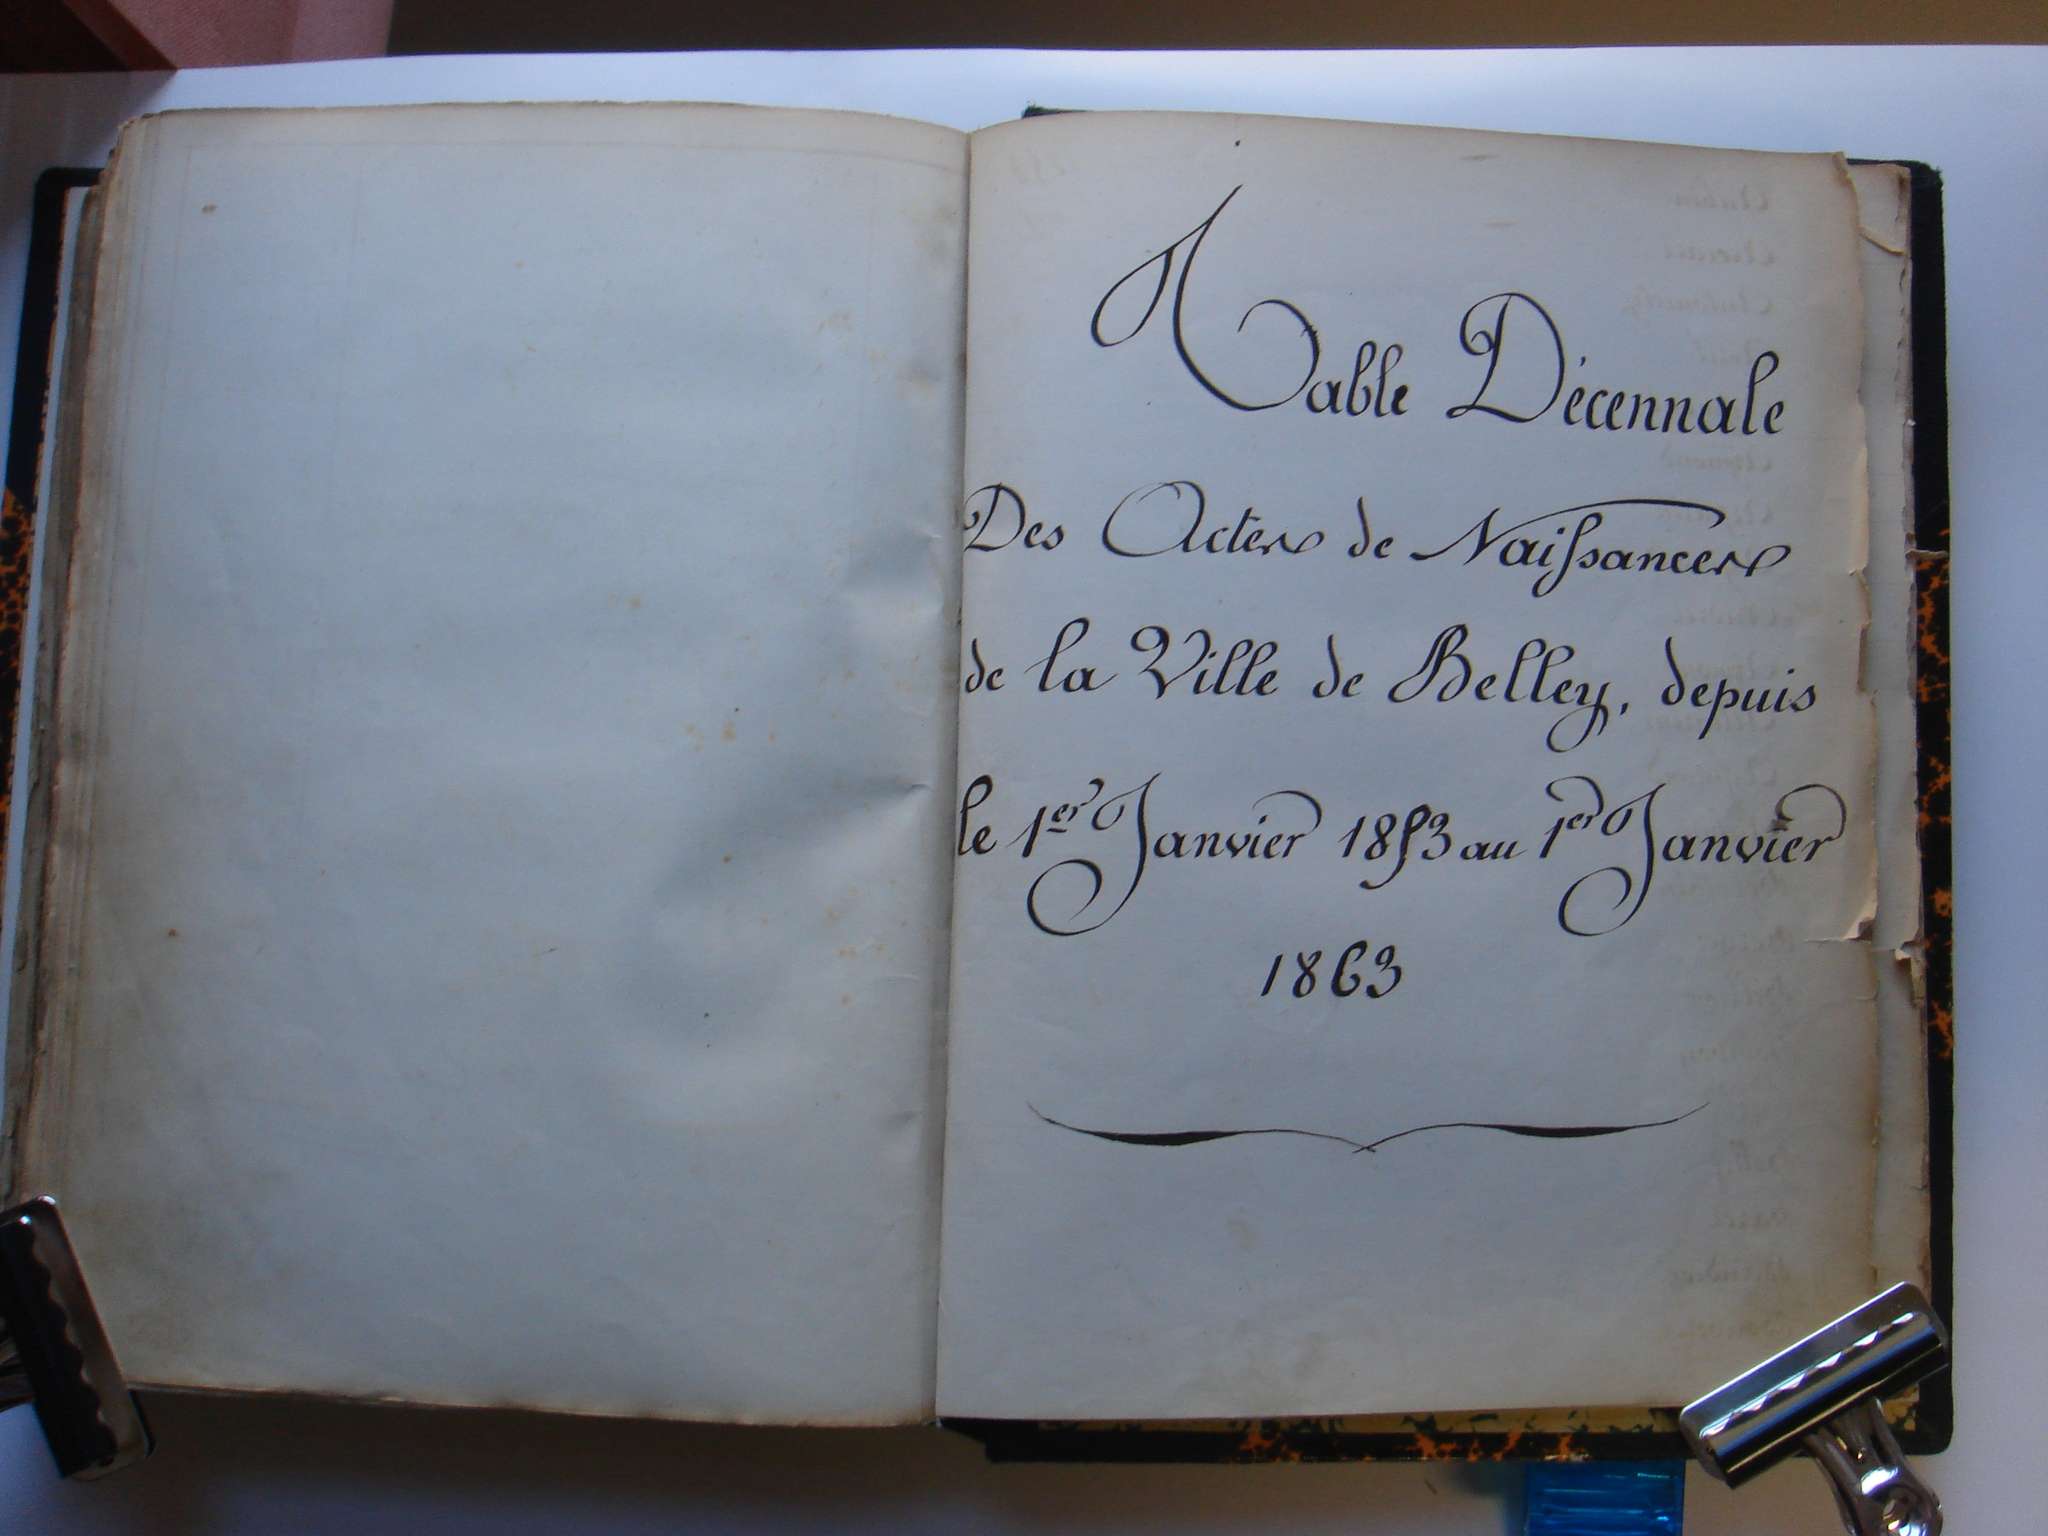 Table Décennale
Des Actes de Naissances
de la Ville de Belley, depuis
le 1er Janvier 1853 au 1er Janvier
1863